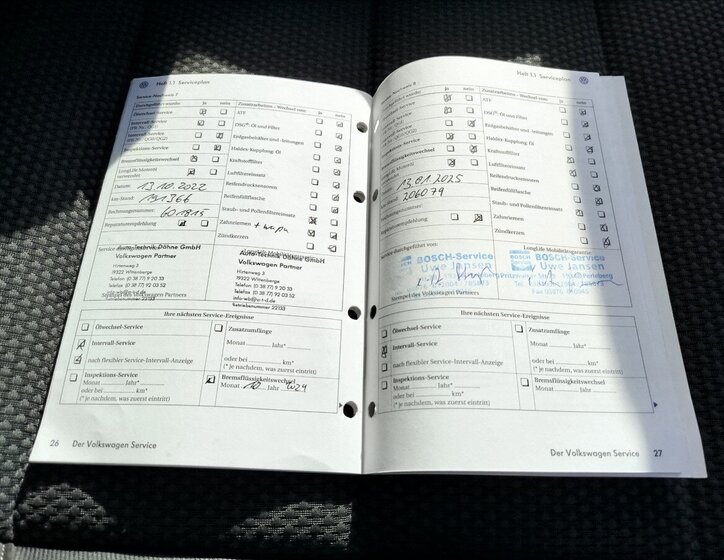 Heft 1.1 Serviceplan
Service-Nachweis 7
Durchgeführt wurde: ja nein
Zusatzarbeiten - Wechsel von: ja nein
Ölwechsel-Service
Intervall-Service
Inspektions-Service
Bremsflüssigkeitswechsel
LongLife Motoröl
verwendet
Datum: 13.10.2022
km-Stand: 191366
Rechnungsnummer: 601815
Reparaturempfehlung
ATF
DSG®: Öl und Filter
Erdgasbehälter und -leitungen
Haldex-Kupplung: Öl
Kraftstofffilter
Reifendrucksensoren
Reifenfüllflasche
Staub- und Pollenfiltereinsatz
Zahnriemen + wapu
Zündkerzen
Auto-Technik Dähne GmbH
Volkswagen Partner
Hirtenweg 3
19322 Wittenberge
Telefon (0 38 77) 9 20 33
Telefax (0 38 77) 92 03 52
Stempel des Volkswagen Partners
Auto-Technik Dähne GmbH
Volkswagen Partner
Hirtenweg 3
19322 Wittenberge
Telefon (0 38 77) 9 20 33
Telefax (0 38 77) 92 03 52
Betriebsnummer 22133
Ihre nächsten Service-Ereignisse
Ölwechsel-Service
Intervall-Service
nach flexibler Service-Intervall-Anzeige
Inspektions-Service
Monat Jahr*
oder bei km*
(* je nachdem, was zuerst eintritt)
Zusatzumfänge
Monat Jahr*
oder bei km*
(* je nachdem, was zuerst eintritt)
Bremsflüssigkeitswechsel
Monat 10 Jahr 2024
26 Der Volkswagen Service
Heft 1.1 Serviceplan
Service-Nachweis 8
Durchgeführt wurde: ja nein
Zusatzarbeiten - Wechsel von: ja nein
Ölwechsel-Service
Intervall-Service
Inspektions-Service
Bremsflüssigkeitswechsel
LongLife Motoröl
Datum: 13.01.2025
km-Stand: 206079
Reparaturempfehlung
ATF
DSG®: Öl und Filter
Erdgasbehälter und -leitungen
Haldex-Kupplung: Öl
Kraftstofffilter
Reifendrucksensoren
Reifenfüllflasche
Staub- und Pollenfiltereinsatz
Zahnriemen
Zündkerzen
Service durchgeführt von:
LongLife Mobilitätsgarantie
BOSCH-Service
Uwe Jansen
Stempel des Volkswagen Partners
BOSCH-Service
Uwe Jansen
Ihre nächsten Service-Ereignisse
Ölwechsel-Service
Intervall-Service
nach flexibler Service-Intervall-Anzeige
Inspektions-Service
Monat Jahr*
oder bei km*
(* je nachdem, was zuerst eintritt)
Zusatzumfänge
Monat Jahr*
oder bei km*
(* je nachdem, was zuerst eintritt)
Bremsflüssigkeitswechsel
Monat Jahr
Der Volkswagen Service 27